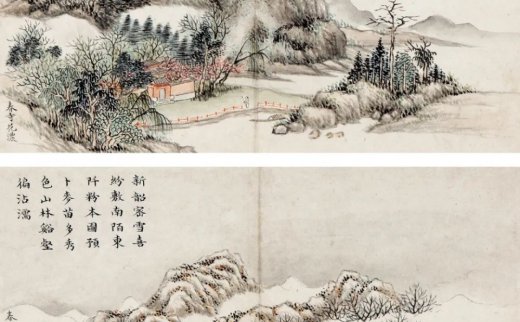 春寺花濃
新韶密雪喜
紛敷南陌東
阡粉本圖預
卜麥苗多秀
色山林谿壑
徧沾濡
春